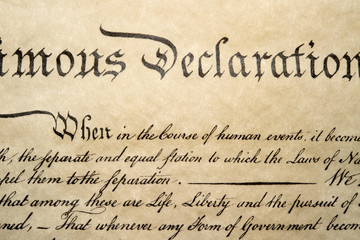 imous Declaration
When in the Course of human events, it become
th, the separate and equal station to which the Laws of Na
pel them to the separation. ——— We
that among these are Life, Liberty and the pursuit of
ned, — That whenever any Form of Government becom